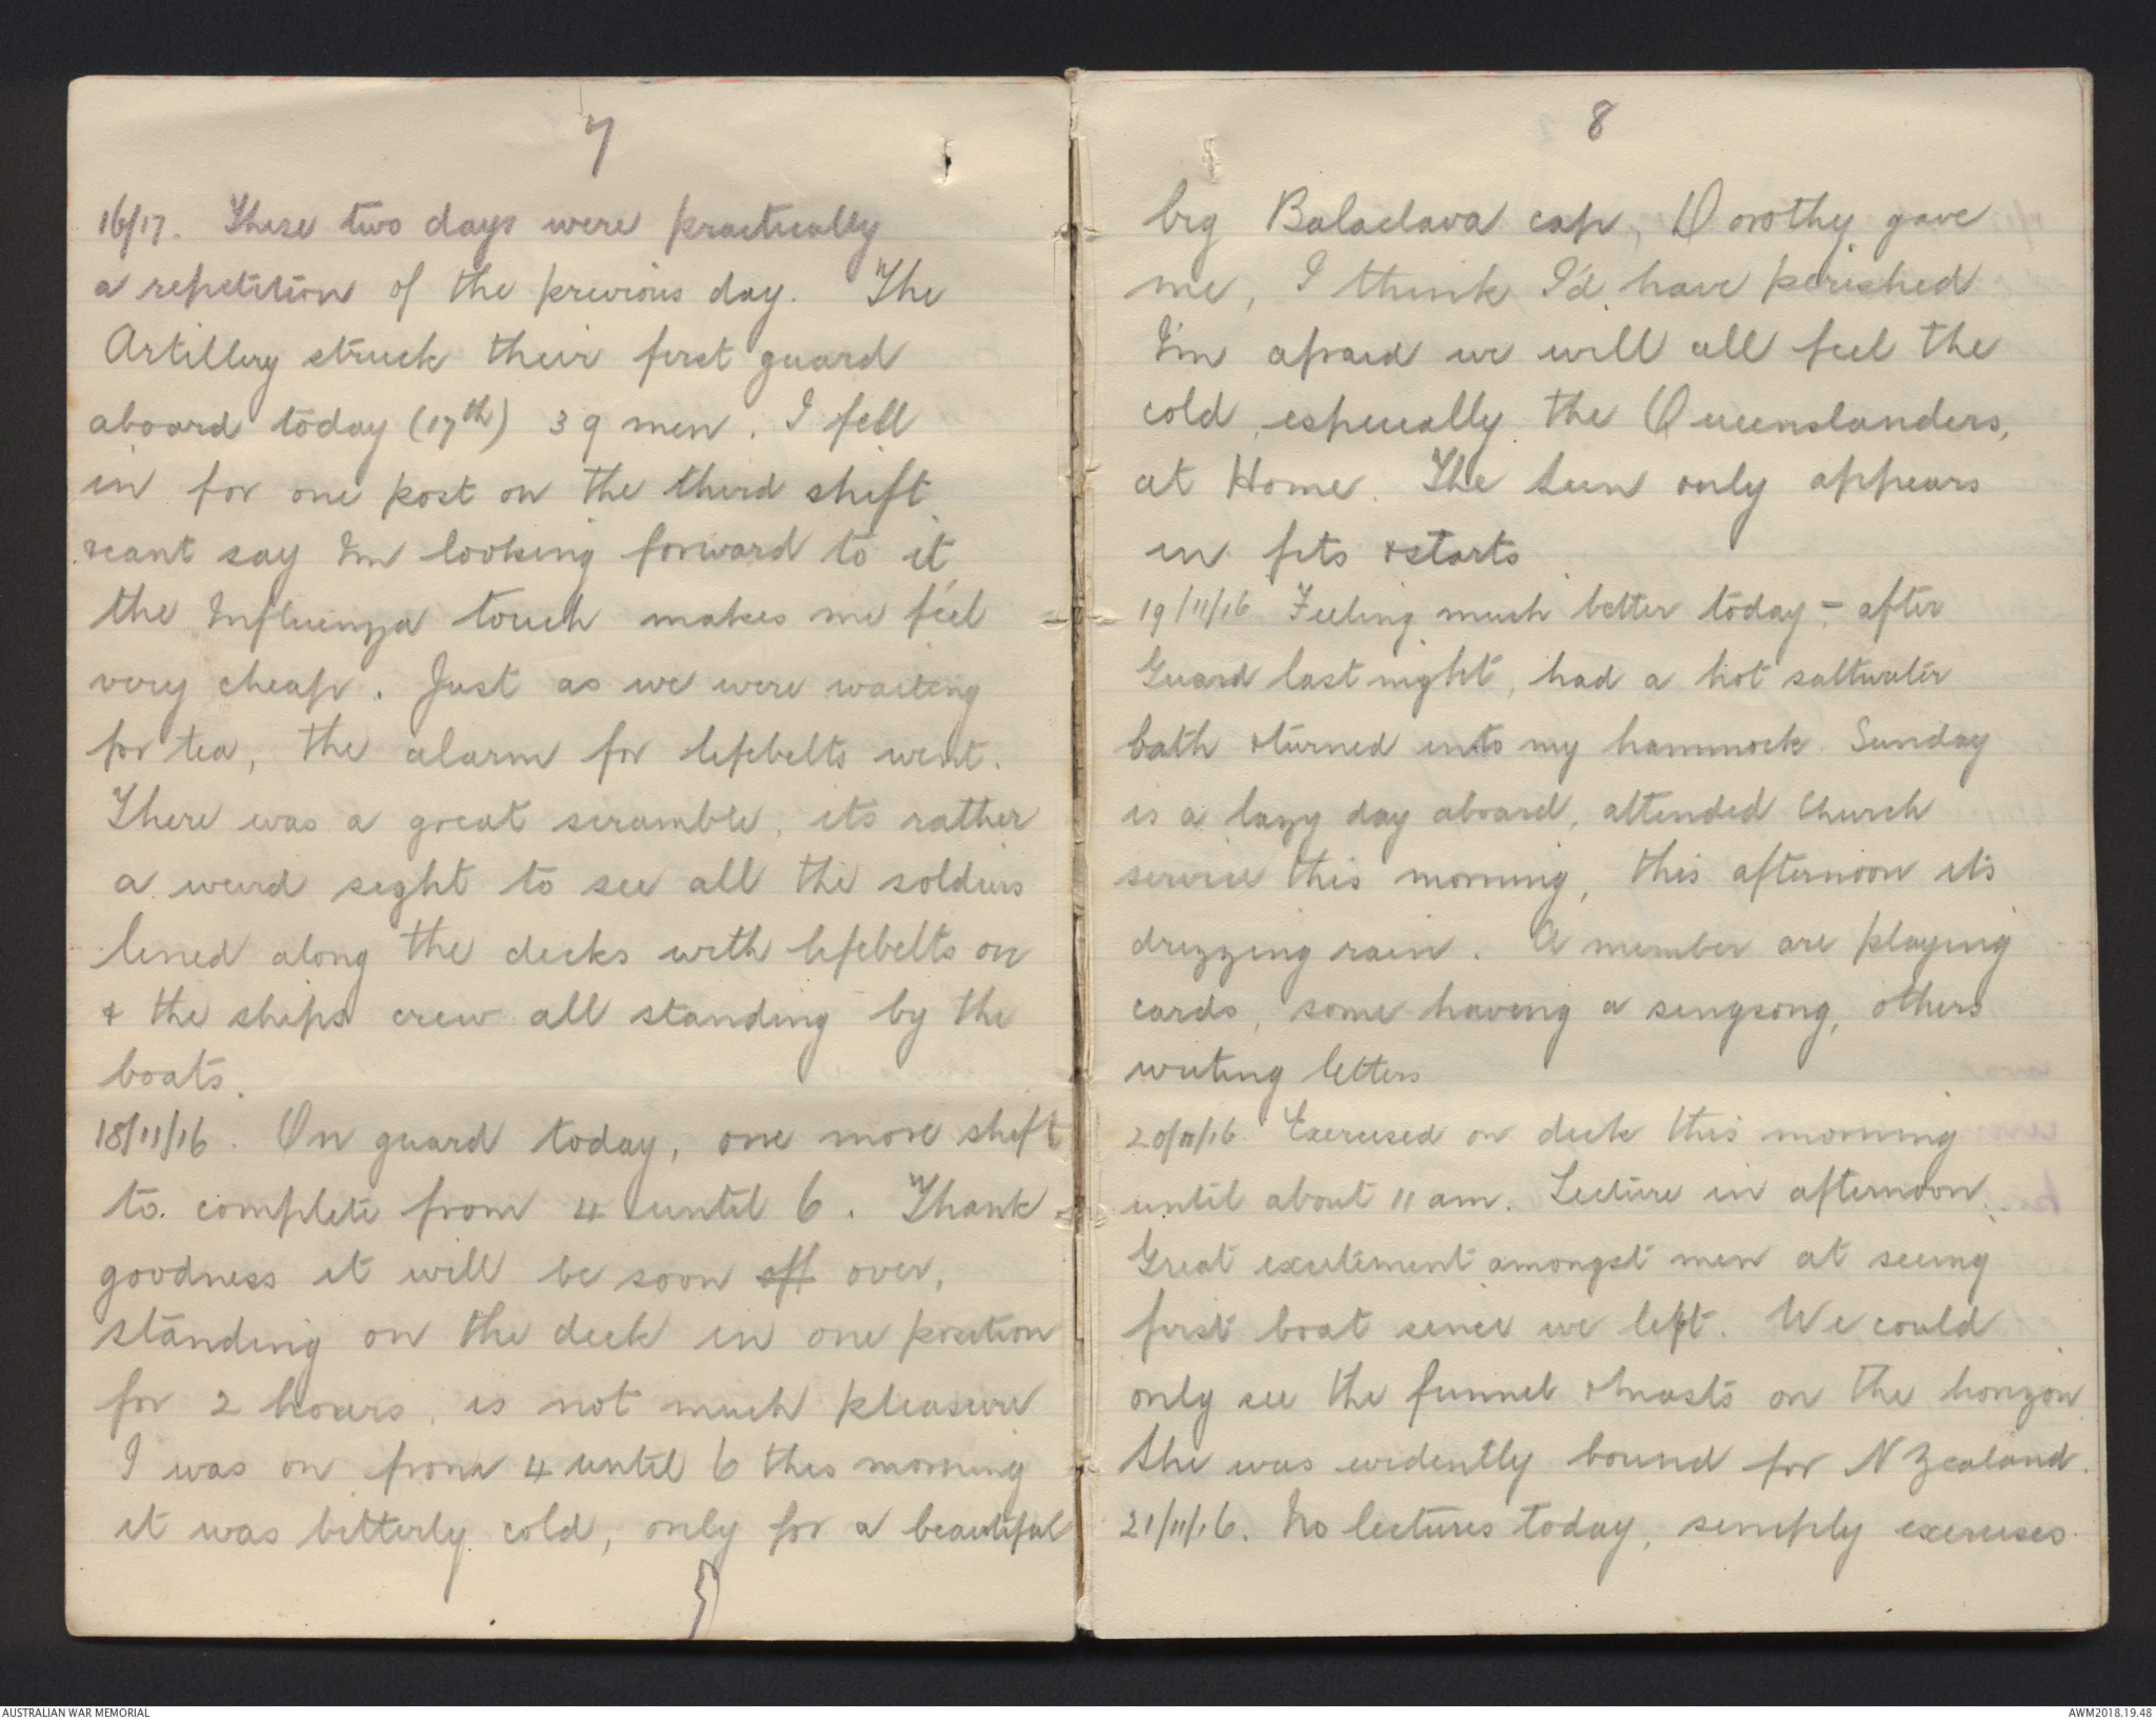 7
16/17. These two days were practically
a repetition of the previous day. The
Artillery struck their first guard
aboard today (17th) 39 men. I fell
in for one post on the third shift.
cant say I'm looking forward to it,
the Influenza touch makes me feel
very cheap. Just as we were waiting
for tea, the alarm for lifebelts went.
There was a great scramble, its rather
a weird sight to see all the soldiers
lined along the decks with lifebelts on
& the ships crew all standing by the
boats.
18/11/16. On guard today, one more shift
to complete from 4 until 6. Thank
goodness it will be soon off over,
standing on the deck in one position
for 2 hours, is not much pleasure
I was on from 4 until 6 this morning
it was bitterly cold, only for a beautiful
8
big Balaclava cap, Dorothy gave
me, I think I'd have perished
I'm afraid we will all feel the
cold, especially the Queenslanders,
at Home. The sun only appears
in fits & starts
19/11/16 Feeling much better today - after
Guard last night, had a hot saltwater
bath & turned into my hammock. Sunday
is a lazy day aboard, attended Church
service this morning, this afternoon it's
drizzing rain. A member are playing
cards, some having a singsong, others
writing letters
20/11/16 Exercised on deck this morning
until about 11 am. Lecture in afternoon.
Great excitement amongst men at seeing
first boat since we left. We could
only see the funnel & masts on the horizon
She was evidently bound for N Zealand.
21/11/16. No lectures today, simply exercises.
AUSTRALIAN WAR MEMORIAL
AWM2018.19.48